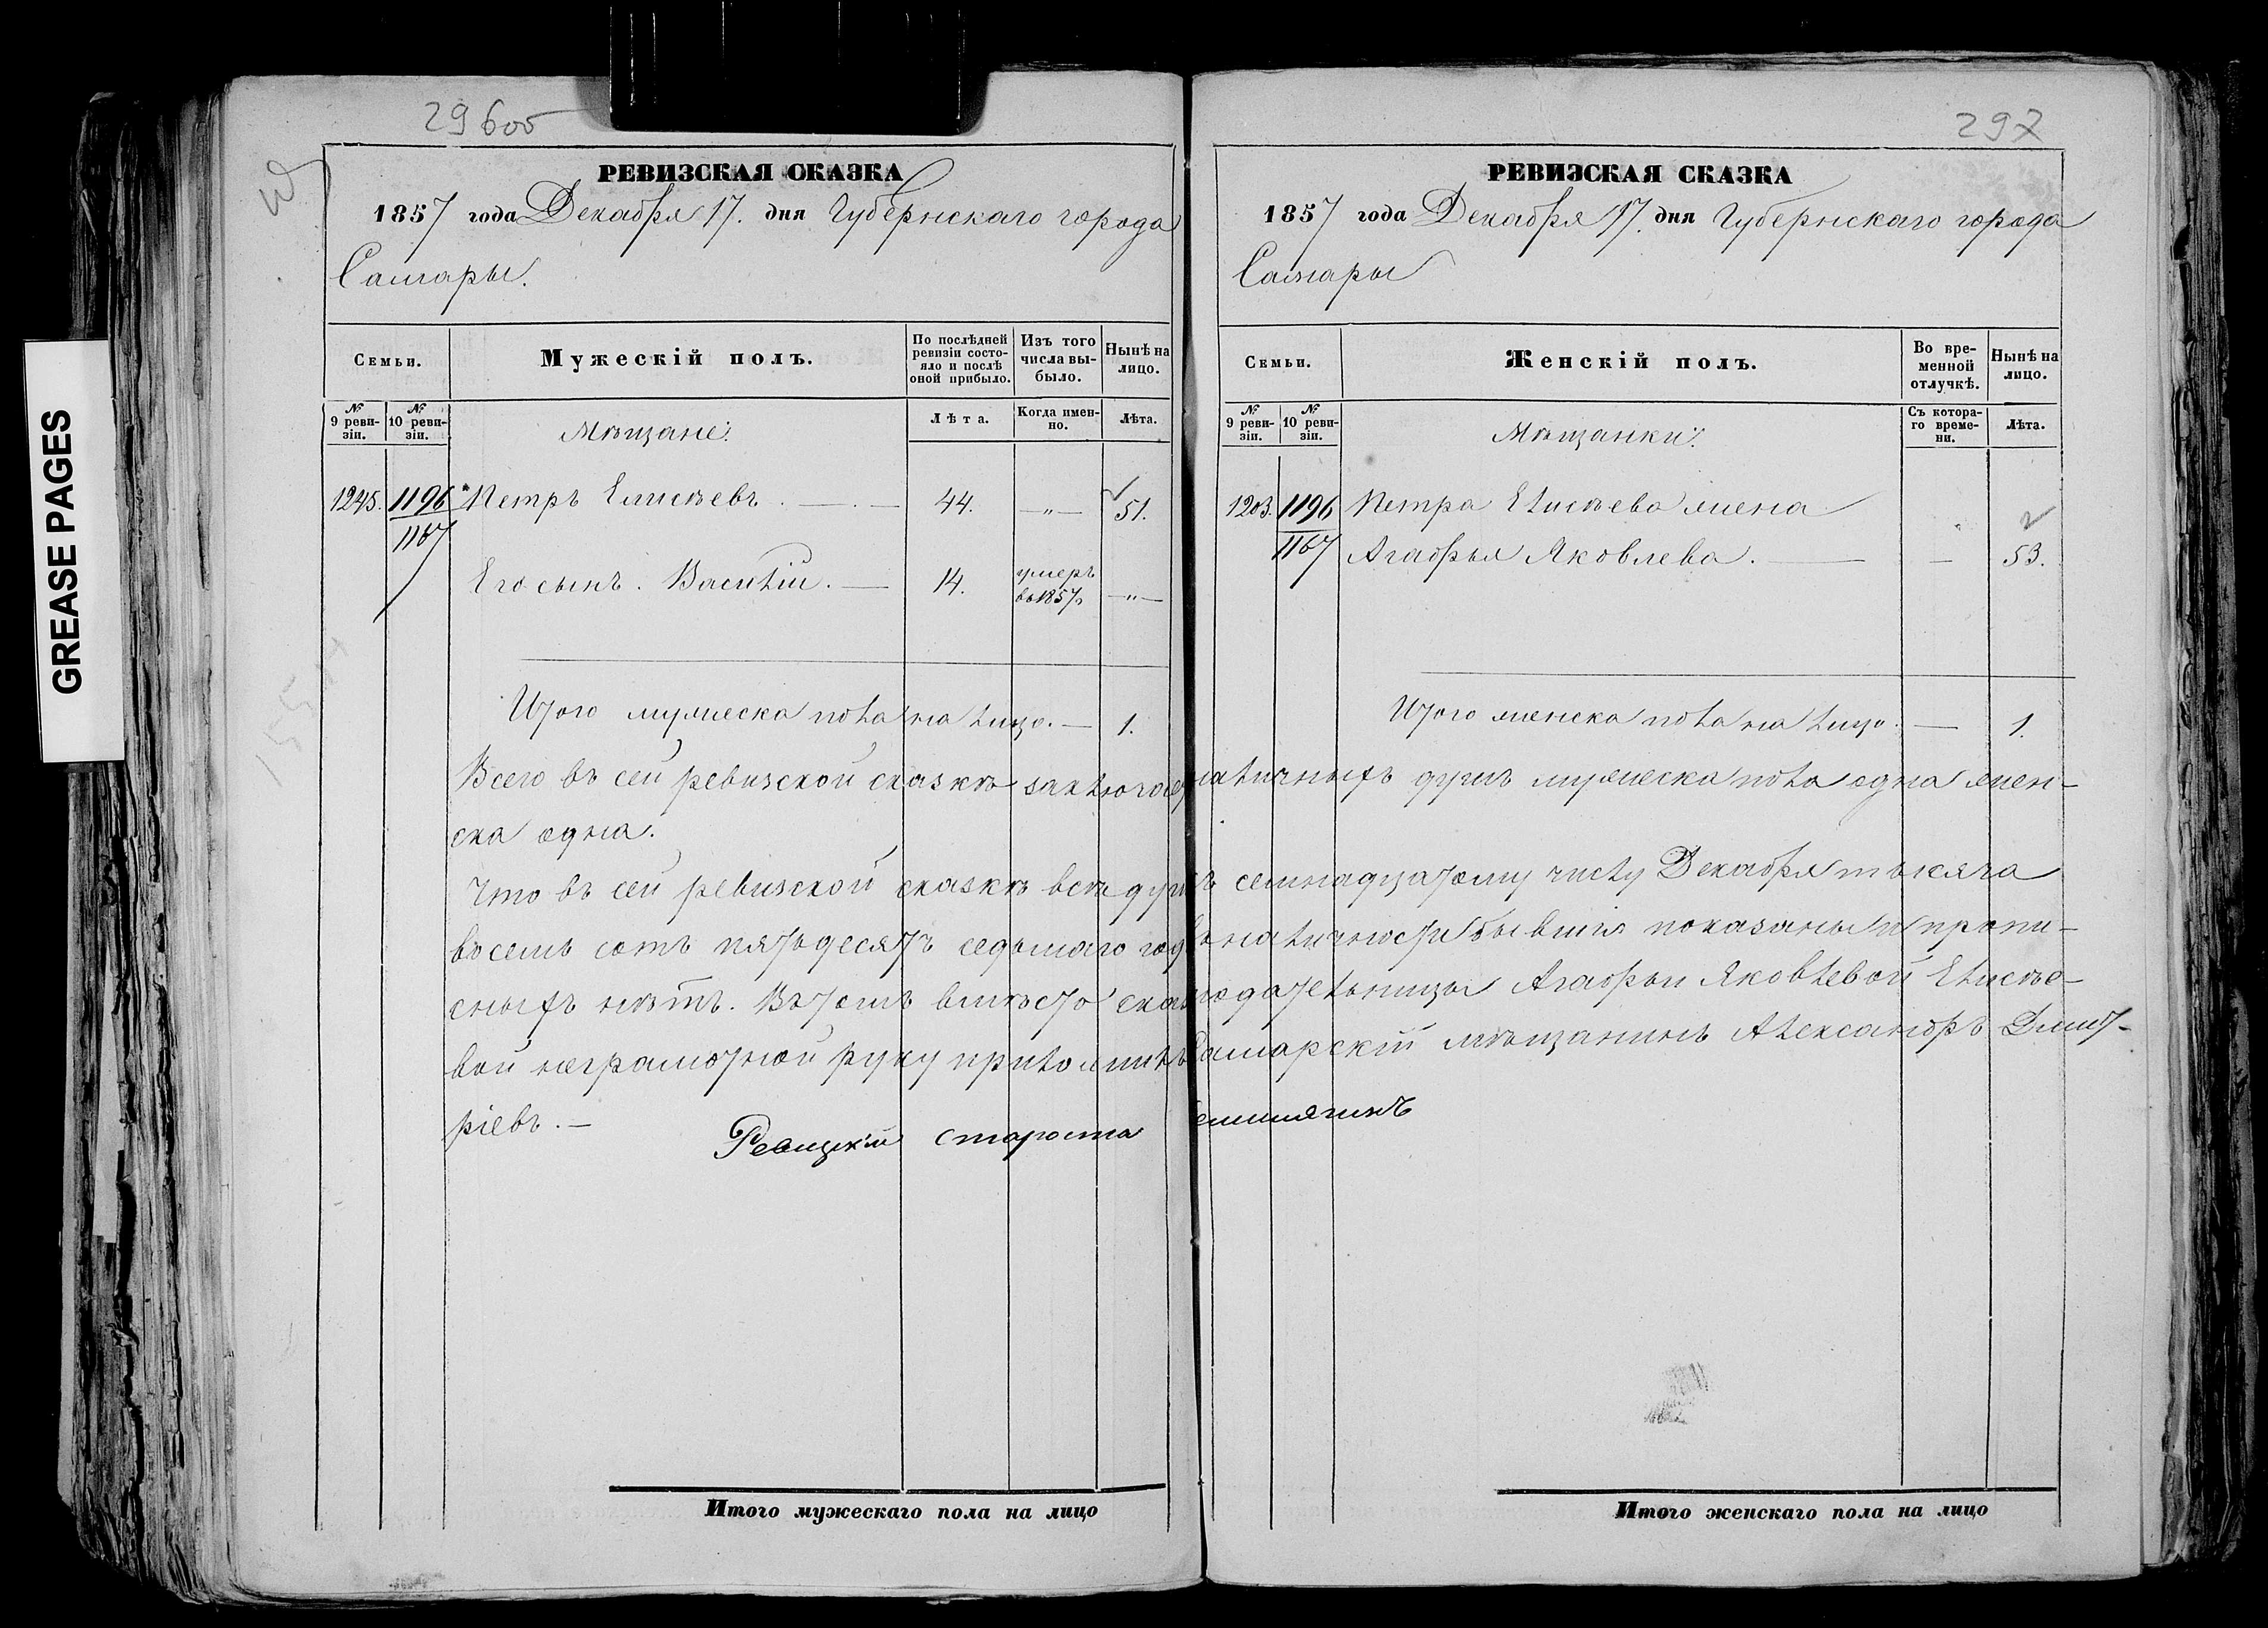 GREASE PAGES
296об
РЕВИЗСКАЯ СКАЗКА
1857 года Декабря 17. дня Губернскаго города
Самары.
Семьи.
Мужескій полъ.
По послѣдней ревизіи состояло и послѣ оной прибыло.
Изъ того числа выбыло.
Нынѣ на лицо.
№ 9 ревизіи.
№ 10 ревизіи.
Мѣщане:
Лѣта.
Когда именно.
Лѣта.
1245. 1196 Петръ Елисѣевъ . — . — 44. —„— 51.
1167
Его сынъ . Василій . — 14. умеръ въ 1857 —„—
Итого мужеска пола на лицо. — 1.
297
РЕВИЗСКАЯ СКАЗКА
1857 года Декабря 17. дня Губернскаго города
Самары
Семьи.
Женскій полъ.
Во временной отлучкѣ.
Нынѣ на лицо.
№ 9 ревизіи.
№ 10 ревизіи.
Мѣщанки:
Съ котораго времени.
Лѣта.
1203. 1196 Петра Елисѣева жена
1167 Агафья Яковлева . — — 53.
Итого женска пола на лицо. — 1.
Всего въ сей ревизской сказкѣ заключае наличныхъ душъ мужеска пола одна жен-
ска одна.
Что въ сей ревизской сказкѣ всѣ душ ъ семнадцатому числу Декабря тысяча
восемь сотъ пятьдесятъ седьмаго год въ наличности бывшія показаны и пропи-
сныхъ нѣтъ. Въ томъ вмѣсто сказ кодательницы Агафьи Яковлевой Елисѣе-
вой неграмотной руку приложилъ Самарскій мѣщанинъ Александръ Дмит-
ріевъ . —
Ревизкій староста
Итого мужескаго пола на лицо
Итого женскаго пола на лицо